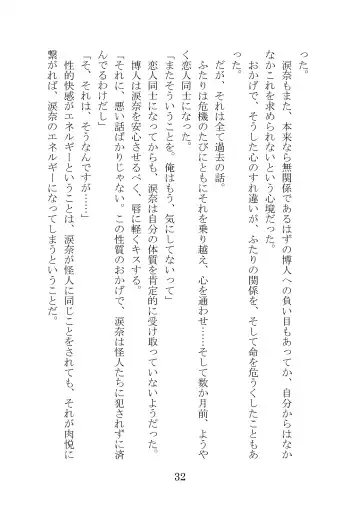 った。
　涙奈もまた、本来なら無関係であるはずの博人への負い目もあってか、自分からはなか
なかこれを求められないという心境だった。
　おかげで、そうした心のすれ違いが、ふたりの関係を、そして命を危うくしたこともあ
った。
　だが、それは全て過去の話。
　ふたりは危機のたびにともにそれを乗り越え、心を通わせ……そして数か月前、ようや
く恋人同士になった。
「またそういうことを。俺はもう、気にしてないって」
　恋人同士になってからも、涙奈は自分の体質を肯定的に受け取っていないようだった。
　博人は涙奈を安心させるべく、唇に軽くキスする。
「それに、悪い話ばかりじゃない。この性質のおかげで、涙奈は怪人たちに犯されずに済
んでるわけだし」
「そ、それは、そうなんですが……」
　性的快感がエネルギーということは、涙奈が怪人に同じことをされても、それが肉悦に
繋がれば、涙奈のエネルギーになってしまうということだ。
32